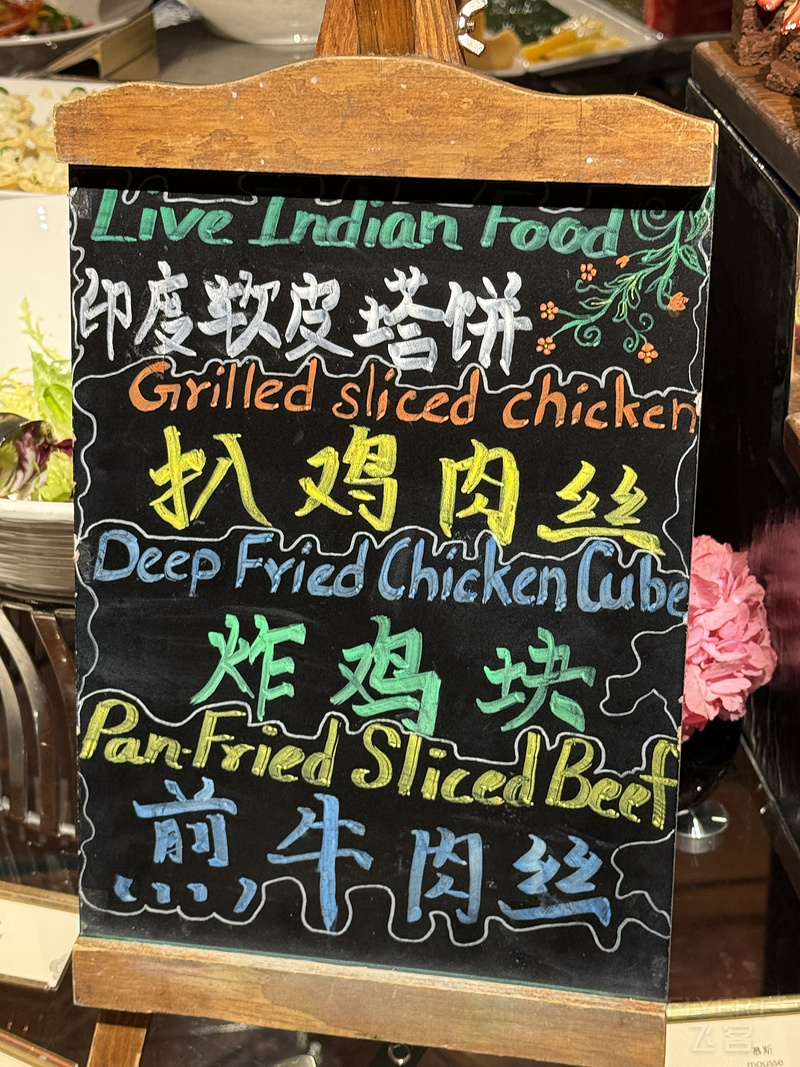 Live Indian Food
印度软皮塔饼
Grilled sliced chicken
扒鸡肉丝
Deep Fried Chicken Cube
炸鸡块
Pan-Fried Sliced Beef
煎牛肉丝
飞客
慕斯
mousse